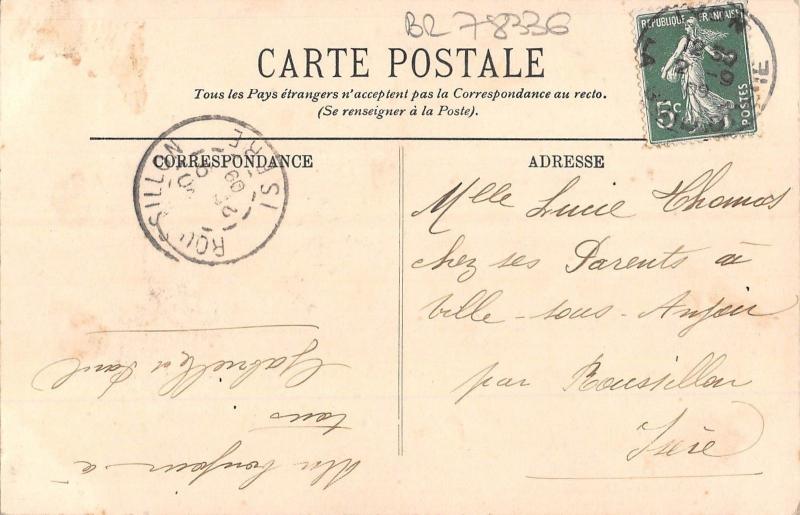 BR 78336
CARTE POSTALE
Tous les Pays étrangers n'acceptent pas la Correspondance au recto.
(Se renseigner à la Poste).
REPUBLIQUE FRANÇAISE
5c
POSTES
CORRESPONDANCE
ROUSSILLON
ISERE
09
Un bonjour à
tous
Gabrielle et Paul
ADRESSE
Mlle Lucie Thomas
chez ses Parents à
Ville-sous-Anjou
par Roussillon
Isère